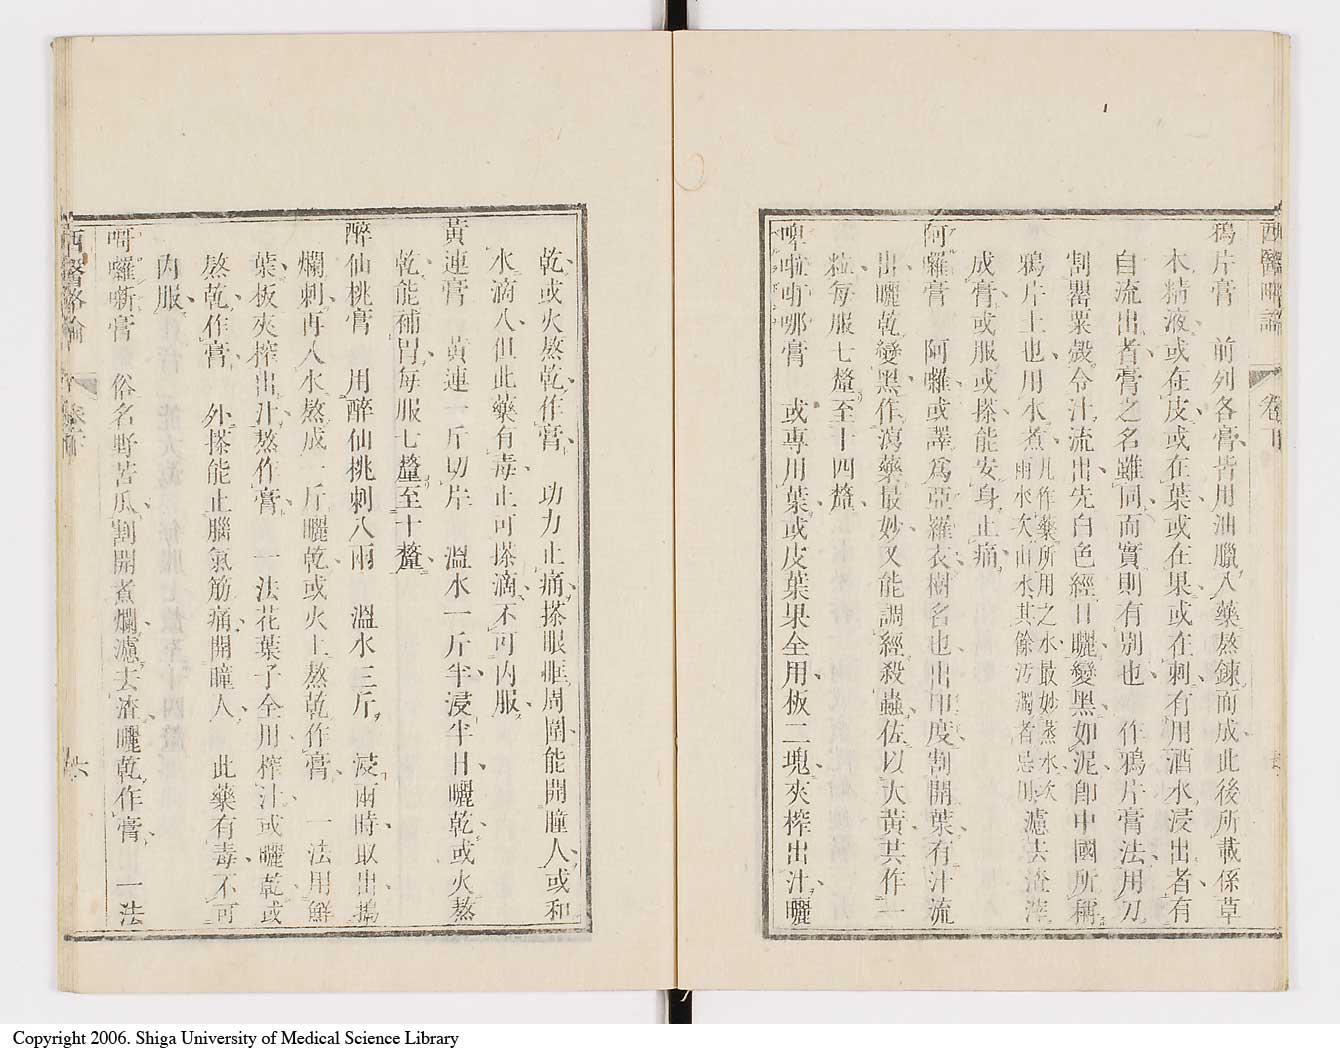 西醫略論 卷下
鴉片膏 前列各膏皆用油臘入藥熬鍊而成此後所載係草
木精液或在皮或在葉或在果或在刺有用酒水浸出者有
自流出者膏之名雖同而實則有別也 作鴉片膏法用刀
割罌粟殼令汁流出先白色經日曬變黑如泥卽中國所稱
鴉片土也用水煮凡作藥所用之水最妙蒸水次雨水次山水其餘汚濁者忌用濾去渣滓
成膏或服或搽能安身止痛
阿囉膏 阿囉或譯爲亞羅衣樹名也出印度割開葉有汁流
出曬乾變黑作瀉藥最妙又能調經殺蟲佐以大黃共作一
粒每服七釐至十四釐
啤啦唎哪膏 或專用葉或皮葉果全用板二塊夾榨出汁曬
乾或火熬乾作膏 功力止痛搽眼眶周圍能開瞳人或和
水滴入但此藥有毒止可搽滴不可內服
黃連膏 黃連一斤切片 溫水一斤半浸半日曬乾或火熬
乾能補胃每服七釐至十釐
醉仙桃膏 用醉仙桃刺八兩 溫水三斤 浸兩時取出搗
爛刺再入水熬成一斤曬乾或火上熬乾作膏 一法用鮮
葉板夾榨出汁熬作膏 一法花葉子全用榨汁或曬乾或
熬乾作膏 外搽能止腦氣筋痛開瞳人 此藥有毒不可
內服
哥囉噺膏 俗名野苦瓜割開煮爛濾去渣曬乾作膏 一法
西醫略論 卷下 六